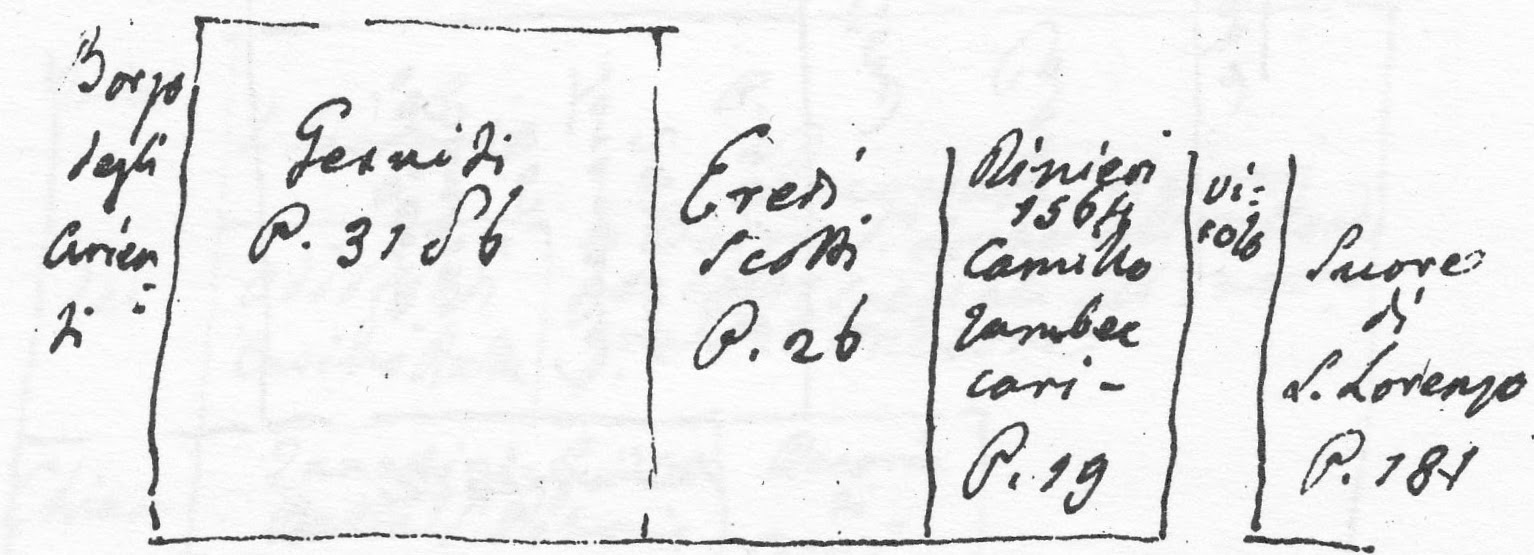 Borgo
degli
Arien
ti
Gesuiti
P. 31 86
Eredi
Scotti
P. 26
Rinieri
1564
Camillo
Zambec
cari -
P. 19
vi:
colo
Suore
di
S. Lorenzo
P. 181